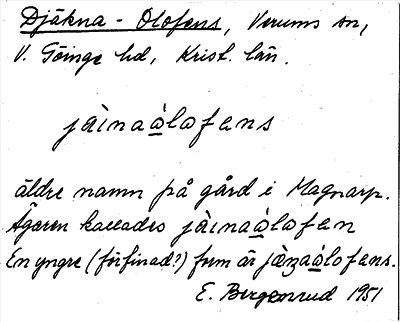 Djäkna - Olofens, Verums sn,
V. Göinge hd, Krist. län.
jàinaàlofens
äldre namn på gård i Magnarp.
Ägaren kallades jàinaàlofen
En yngre (förfinad?) form är jàṇaàlofens.
E. Bergenrud 1951